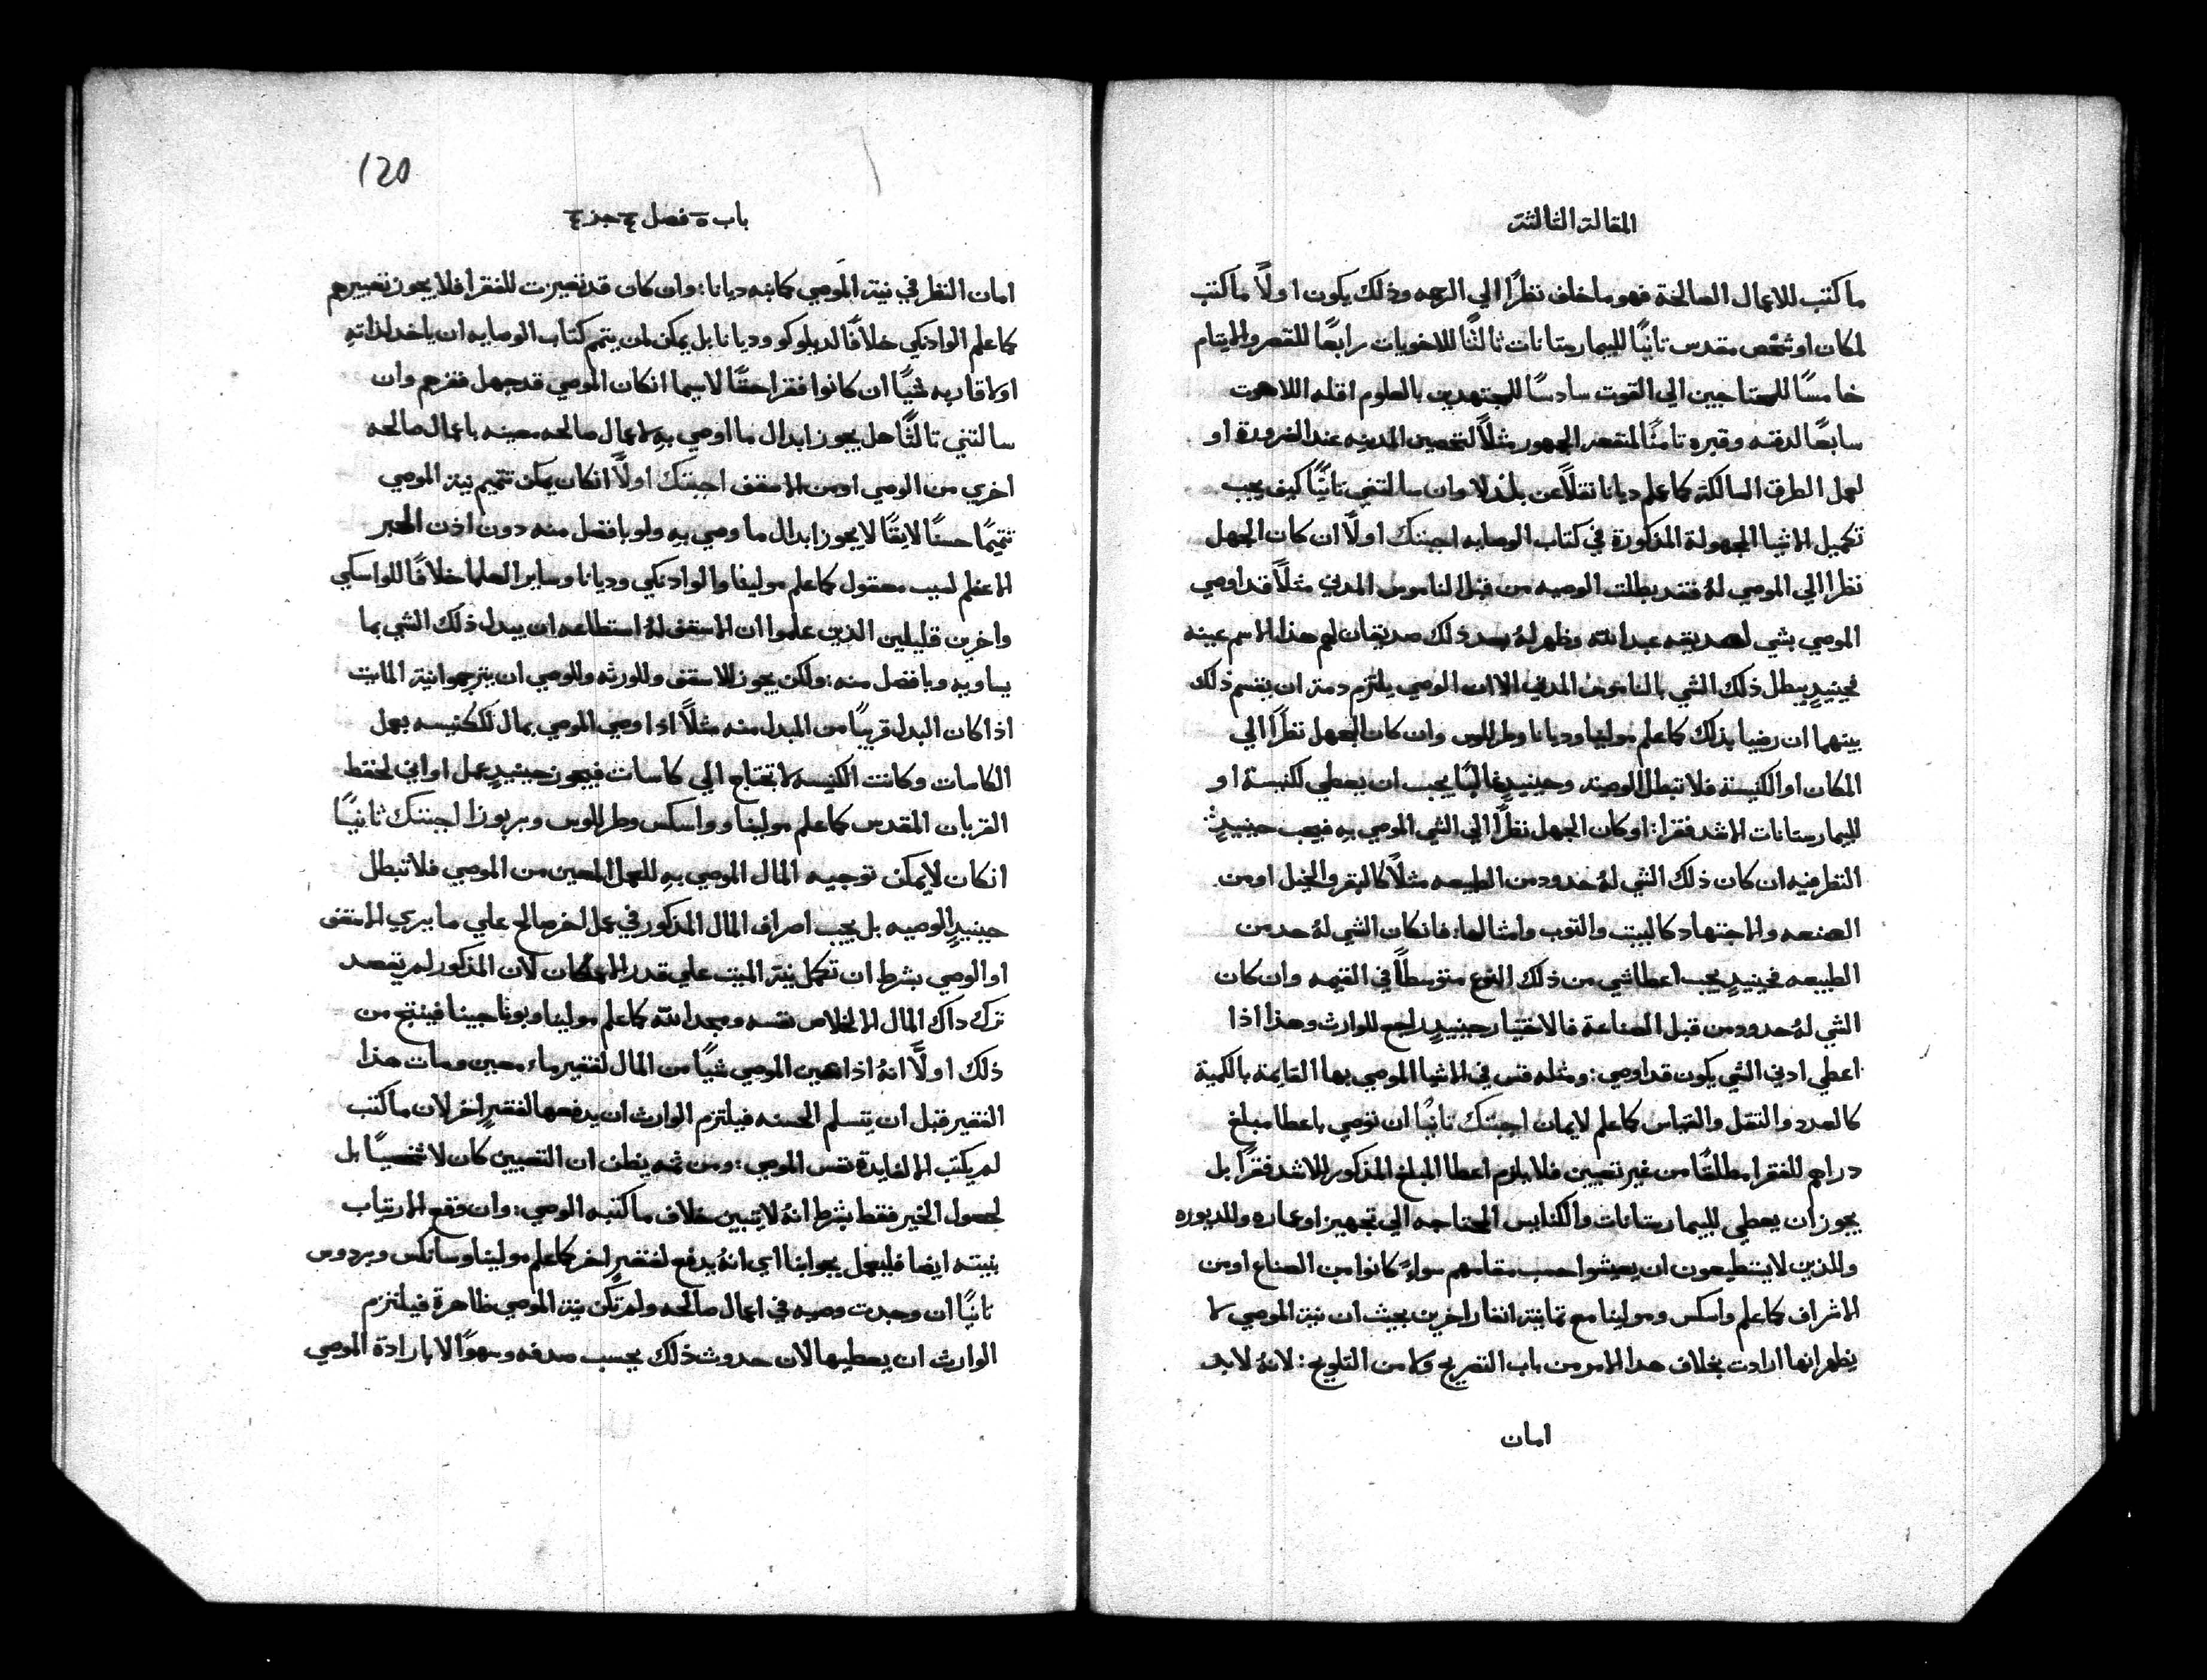 المقالة الثالثة
ما كتب للاعمال الصالحة فهو ما خلف نظرًا الي الرحمه وذلك يكون اولًا ما كتب
لمكان او شخص مقدس تانيًا للبيمارستانات ثالثًا للاخويات رابعًا للقصر والايتام
خامسًا للمحتاجين الي القوت سادسًا للمجتهدين بالعلوم اقله اللاهوت
سابعًا لدفنه وقبره تامنًا لمنفعة الجمهور مثلًا لتحصين المدينه عند الضرورة او
لعمل الطرق السالكة كما علم ديانا نقلًا عن وان سالتني تانيًا كيف يجب
تكميل الاشيا المجهولة المذكورة في كتاب الوصايه اجبتك اولًا ان كان الجهل
نظرا الي الموصي لهُ فقد بطلت الوصيه من قبل الناموس المدني مثلًا قد اوصي
الموصي بشي لصديقه عبد الله وظهر لهُ بعد ذلك صديقان لهم هذا الاسم عينه
فحينيدٍ يبطل ذلك الشي بالناموس المدني الا ان الوصي يلتزم دمة ان يقسم ذلك
بينهما ان رضيا بذلك كما علم مولينا وديانا وطرللوس وان كان الجهل نظرًا الي
المكان او الكنيسة فلا تبطل الوصية وحينيدٍ غالبًا يجب ان يعطي لكنيسة او
للبيمارستانات الاشد فقرا: او كان الجهل نظرًا الي الشي الموصي به فيجب حينيدٍ
النظر فيه ان كان ذلك الشي لهُ حدود من الطبيعه مثلًا كالبقر والخيل او من
الصنعه والاجتهاد كالبيت والتوب وامثالها: فانكان الشي لهُ حد من
الطبيعه فحينيدٍ يجب اعطا شي من ذلك النوع متوسطًا في القيمه وان كان
الشي لهُ حدود من قبل الصناعة فالاختيار حينيدٍ راجع للوارث وهذا اذا
اعطي ادني الشي يكون قد اوصي: ومثله قس في الاشيا الموصي بها القايمة بالكمية
كالعدد والتقل والقياس كما علم لايمان اجبتك تانيًا ان توصي باعطا مبلغ
دراهم للفقرا مطلقًا من غير تعيين فلا يلزم اعطا المبلغ المذكور للاشد فقرًا بل
يجوز ان يعطي للبيمارستانات والكنايس المحتاجه الي تجهيز او عماره وللديوره
وللذين لا يستطيعون ان يعيشوا حسب مقامهم سواءً كانوا من الصناع او من
الاشراف كما علم واسكس ومولينا مع تمانية انفار اخرين بحيث ان نية الموصي لا
يظهر انها ارادت بخلاف هدا الامر من باب التصريح ولا من التلويح: لانهُ لابد
امان
120
باب ه فصل ج جز ج
امان النظر في نية الموصي كما نبه ديانا: وان كان قد تعينت للفقرا فلا يجوز تغييرهم
كما علم الوادنكي خلافًا لديلوكو وديانا بل يمكن لمن يتمم كتاب الوصايه ان ياخد لذاته
او لاقاربه شيًا ان كانوا فقرا حقًا لاسيما انكان الموصي قد جهل فقرهم وان
سالتني تالثًا هل يجوز ابدال ما اوصي به لاعمال صالحه معينه باعمال صالحه
اخري من الوصي او من الاسقف اجبتك اولًا انكان يمكن تتميم نية الموصي
تتميمًا حسنًا لايقًا لا يجوز ابدال ما وصي به ولو بافضل منه دون اذن الحبر
الاعظم لسبب معقول كما علم مولينا والوادنكي وديانا وساير العلما خلافًا للواسكي
واخرين قليلين الذين علموا ان الاسقف لهُ استطاعه ان يبدل ذلك الشي بما
يساويه وبافضل منه: ولكن يجوز للاسقف وللورثه وللوصي ان يترجموا نية المايت
اذا كان البدل قريبًا من المبدل منه مثلًا اذا وصي الموصي بمال للكنيسه بعمل
الكاسات وكانت الكنيسه لا تحتاج الي كاسات فيجوز حينيدٍ عمل اواني لحفظ
القربان المقدس كما علم مولينا وواسكس وطرللوس وبربوزا اجبتك ثانيًا
انكان لا يمكن توجيه المال الموصي به للعمل المعين من الموصي فلا تبطل
حينيدٍ الوصيه بل يجب اصراف المال المذكور في عمل اخر صالح علي ما يري الاسقف
او الوصي بشرط ان تكمل نية الميت علي قدر الامكان لان المذكور لم يقصد
ترك داك المال الا لخلاص نفسه ومجد الله كما علم مولينا وبوناجينا فينتج من
ذلك اولًا انهُ اذا عين الموصي شيًا من المال لفقير ماء معين ومات هذا
الفقير قبل ان يتسلم الحسنه فيلتزم الوارث ان يدفعها لفقيرٍ اخر لان ما كتب
لم يكتب الا لفايدة نفس الموصي: ومن ثمه يظن ان التعيين كان لا شخصيًا بل
لحصول الخير فقط بشرط انهُ لا يتبين خلاف ما كتبه الوصي: وان وقع الارتياب
بنيته ايضا فليعمل بجوابنا اي انهُ يدفع لفقيرٍ اخر كما علم مولينا وسانكس وبردوس
تانيًا ان وجدت وصيه في اعمال صالحه ولم تكن نية الموصي ظاهرة فيلتزم
الوارث ان يعطيها لان حدوث ذلك بحسب صدفه وسهوًا لا بارادة الموصي